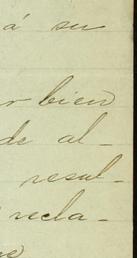 á su
r bien
de al-
resul-
recla-